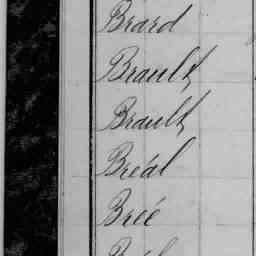 Brard
Brault
Brault
Bréal
Breé